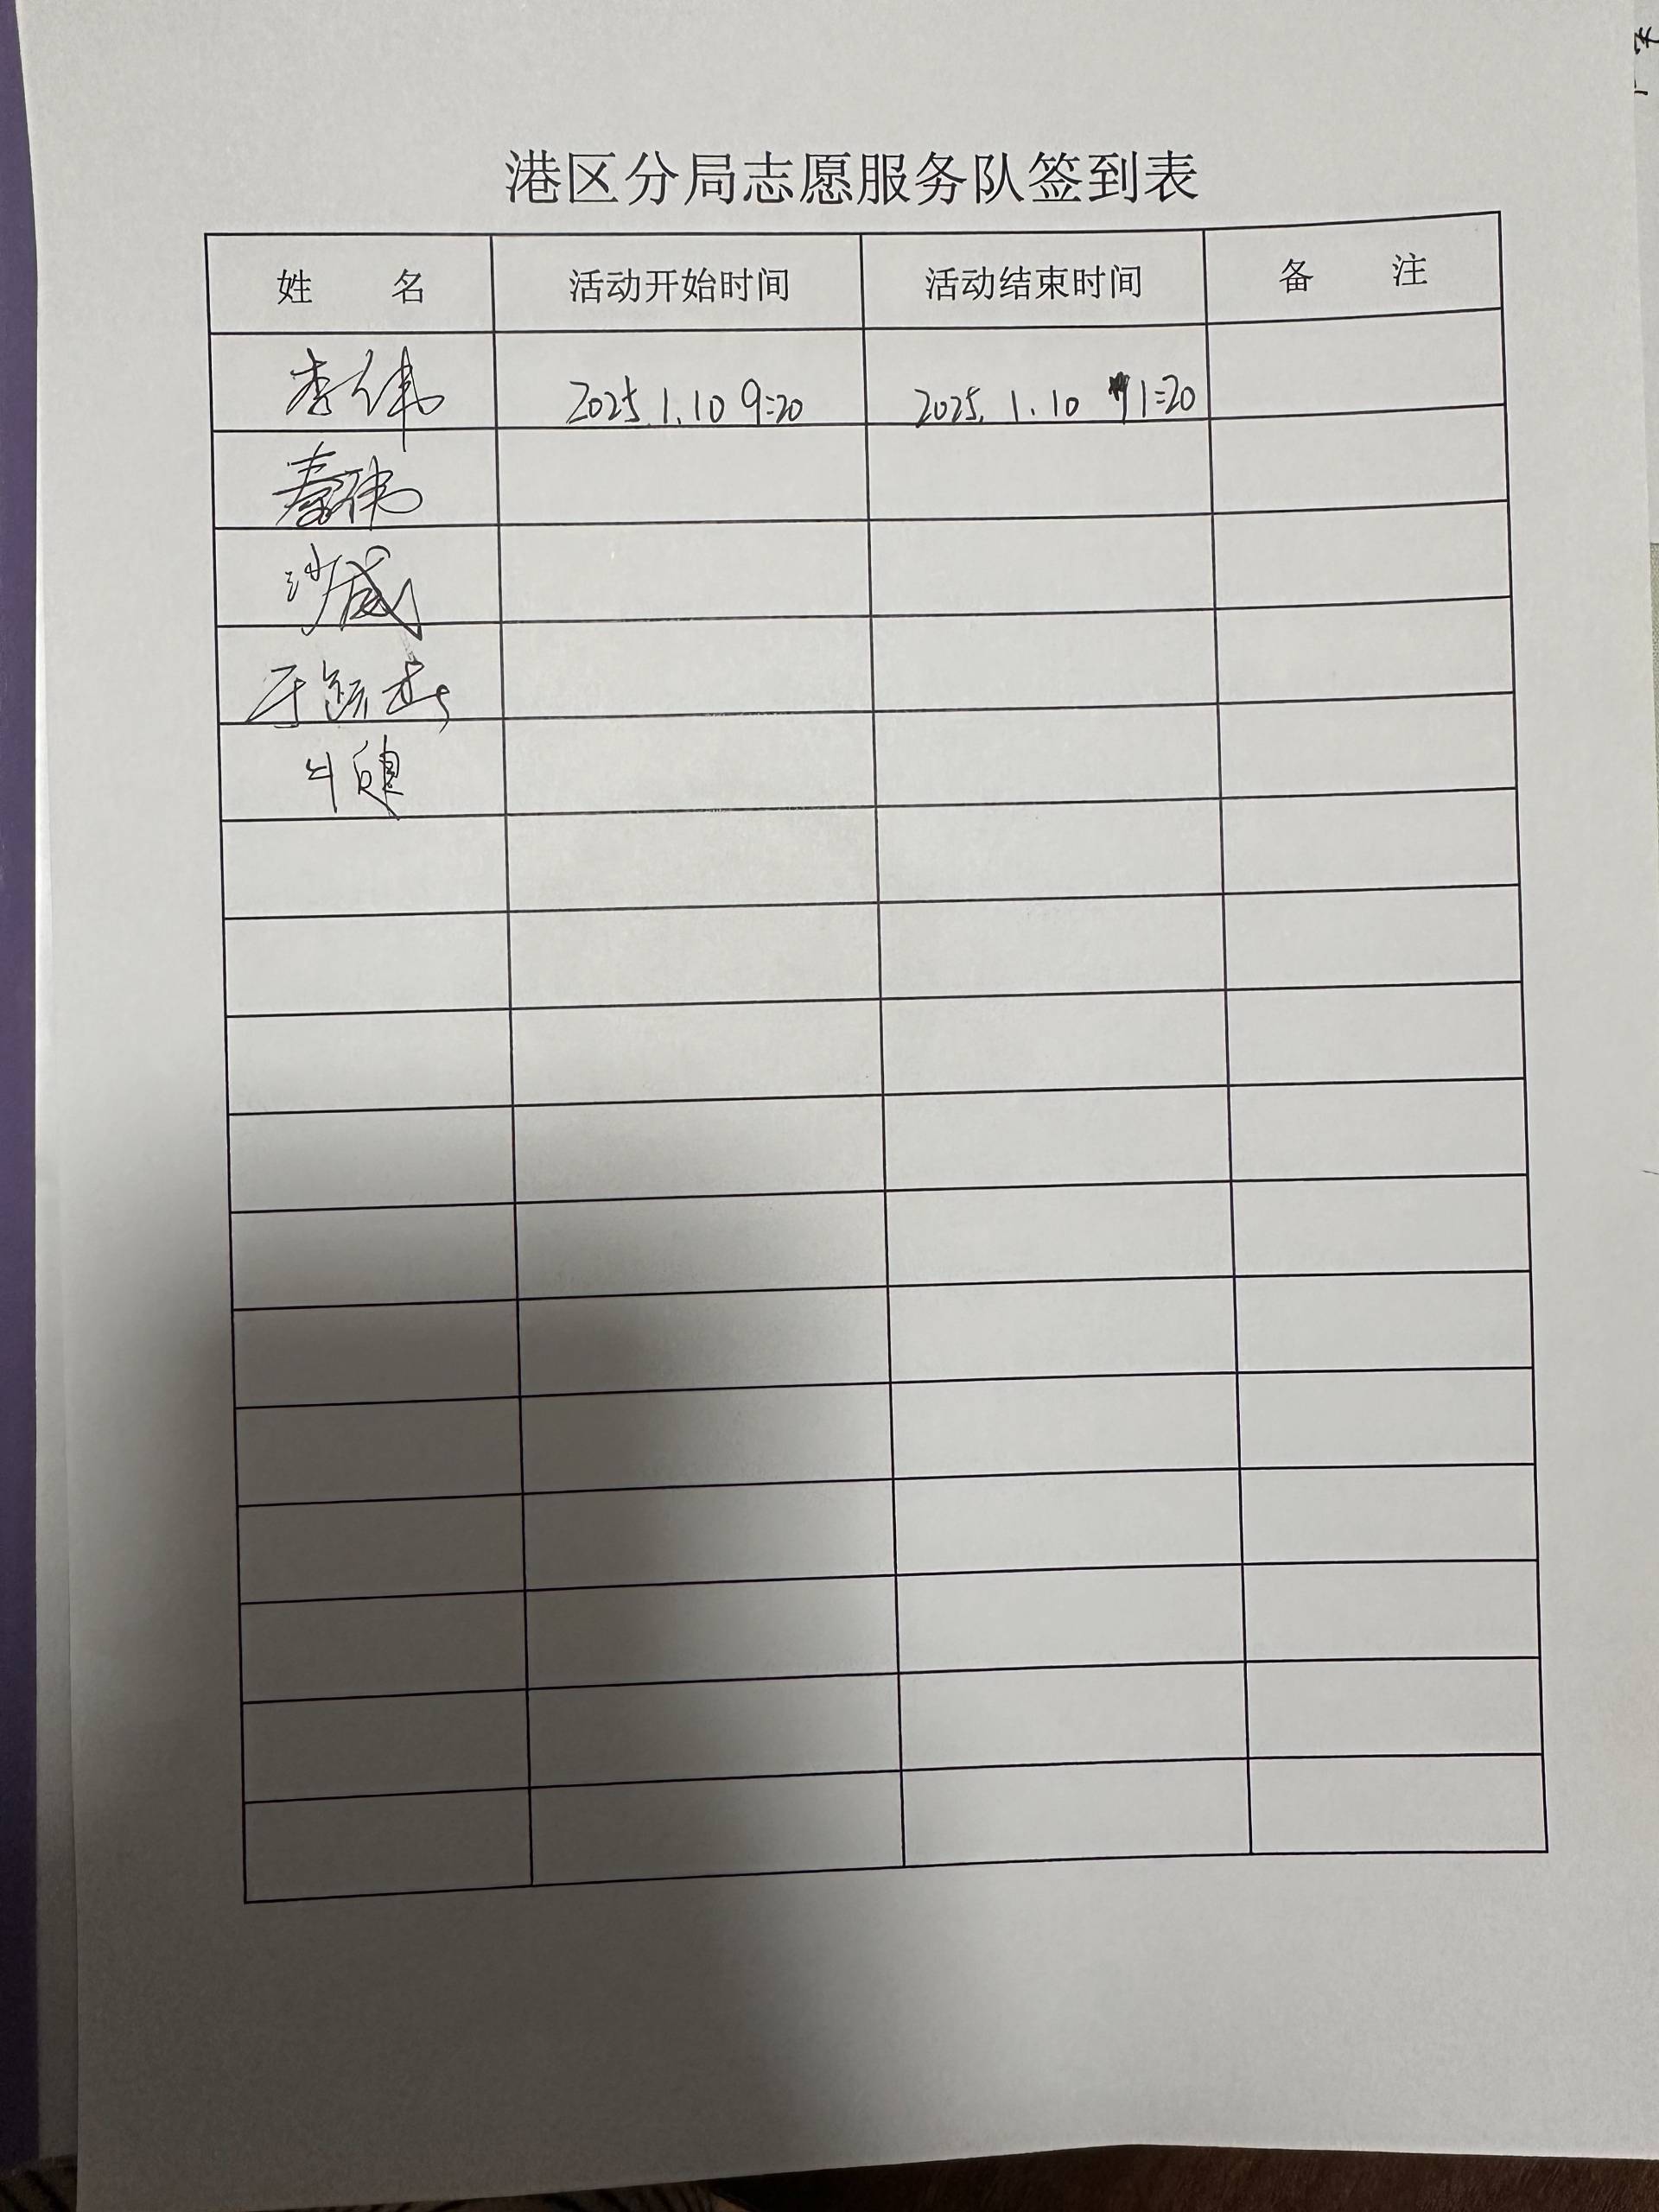 港区分局志愿服务队签到表
姓 名 活动开始时间 活动结束时间 备 注
李伟 2025.1.10 9:20 2025.1.10 11:20
秦伟
沙威